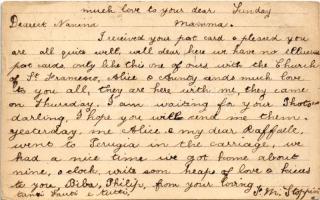 much love to your dear Sunday
Dearest Nanina Mamma.
I received your post card & pleased you
are all quite well, well dear here we have no
post cards, only like this one of ours with the Church
of St. Francesco, Alice & Aunty sends much love
to you all, they are here with me, they came
on Thursday. I am waiting for your Photo
darling, I hope you will send me them.
yesterday me Alice & my dear Raffaele,
went to Perugia in the carriage, we
had a nice time we got home about
nine, o clock, write soon heaps of love & kisses
to you, Biba, Philip, from your loving
tanti saluti a tutti,